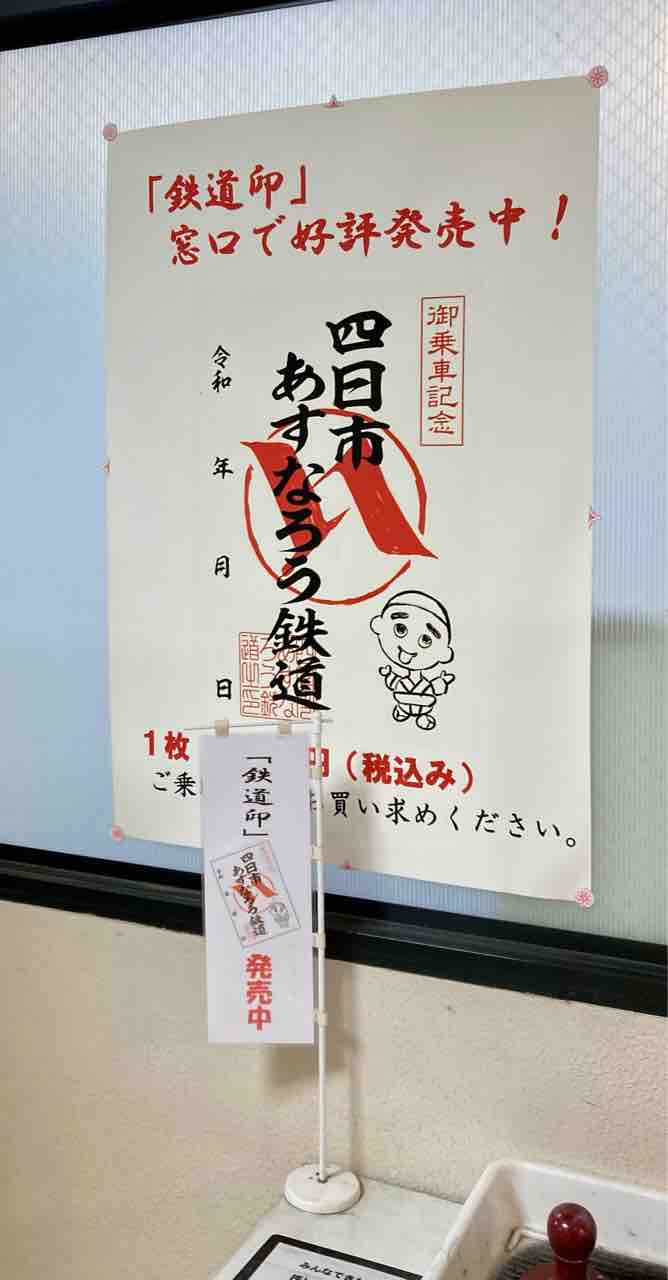 「鉄道印」
窓口で好評発売中！
御乗車記念
四日市
あすなろう鉄道
令和 年 月 日
1枚 円（税込み）
ご乗 買い求めください。
「鉄道印」
四日市
あすなろう鉄道
発売中
みんなでき